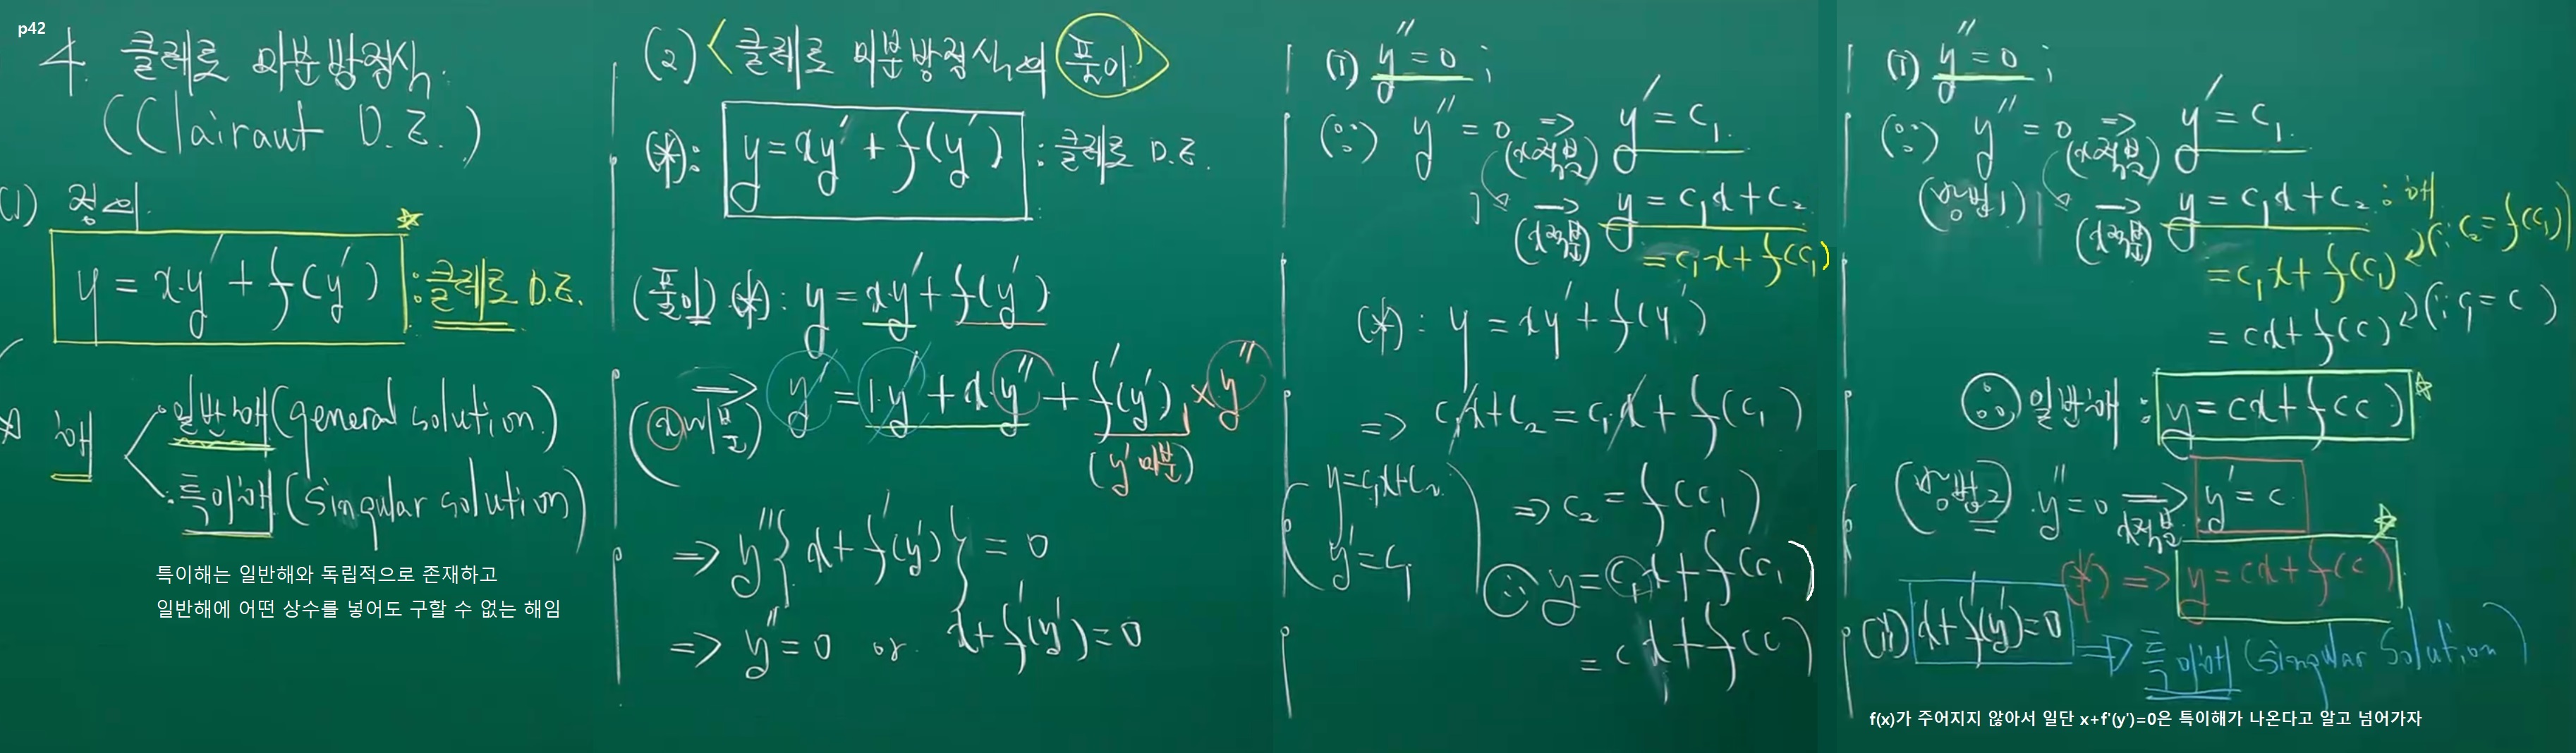 p42
4. 클레로 미분방정식.
(Clairaut D.E.)
(1) 정의.
y = x·y′ + f(y′) : 클레로 D.E.
해
일반해 (general solution)
특이해 (singular solution)
특이해는 일반해와 독립적으로 존재하고
일반해에 어떤 상수를 넣어도 구할 수 없는 해임
(2) <클레로 미분방정식의 풀이>
(*): y = xy′ + f(y′) : 클레로 D.E.
(풀이) (*): y = xy′ + f(y′)
⇒ (x미분) y′ = 1·y′ + x·y″ + f′(y′) × y″
(y′미분)
⇒ y″{x + f′(y′)} = 0
⇒ y″ = 0 or x + f′(y′) = 0
(i) y″ = 0 ;
(∵) y″ = 0 ⇒ (x적분) y′ = c₁
⇒ (x적분) y = c₁x + c₂
= c₁x + f(c₁)
(*) : y = xy′ + f(y′)
⇒ c₁x + c₂ = c₁x + f(c₁)
(y = c₁x + c₂
y′ = c₁)
⇒ c₂ = f(c₁)
∴ y = c₁x + f(c₁)
= cx + f(c)
(i) y″ = 0 ;
(∵) y″ = 0 ⇒ (x적분) y′ = c₁
(방법1) ⇒ (x적분) y = c₁x + c₂ : 해
= c₁x + f(c₁) (∵ c₂ = f(c₁))
= cx + f(c) (∵ c₁ = c)
∴ 일반해 : y = cx + f(c)
(방법2) y″ = 0 ⇒ x적분 y′ = c
(*) ⇒ y = cx + f(c)
(ii) x + f′(y′) = 0 ⇒ 특이해 (singular solution)
f(x)가 주어지지 않아서 일단 x+f'(y')=0은 특이해가 나온다고 알고 넘어가자